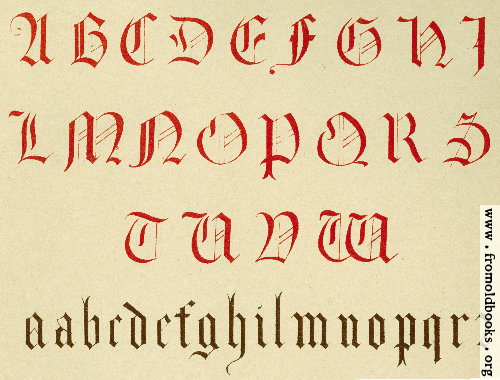 A B C D E F G H I
L M N O P Q R S
T U V W
aabcdefghilmnopqr
www.fromoldbooks.org